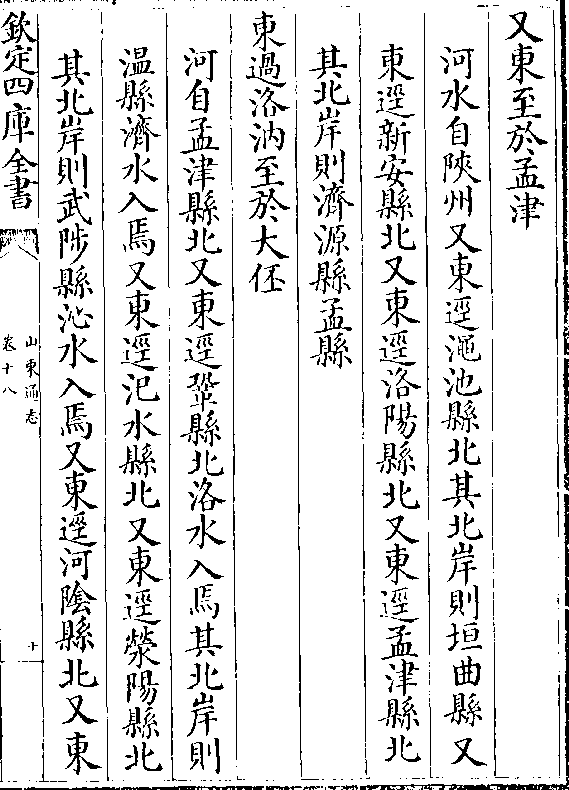 又東至於孟津
河水自陜州又東逕澠池縣北其北岸則垣曲縣又
東逕新安縣北又東逕洛陽縣北又東逕孟津縣北
其北岸則濟源縣孟縣
東過洛汭至於大伾
河自孟津縣北又東逕鞏縣北洛水入焉其北岸則
温縣濟水入焉又東逕汜水縣北又東逕滎陽縣北
其北岸則武陟縣沁水入焉又東逕河陰縣北又東
欽定四庫全書
山東通志
卷十八
十